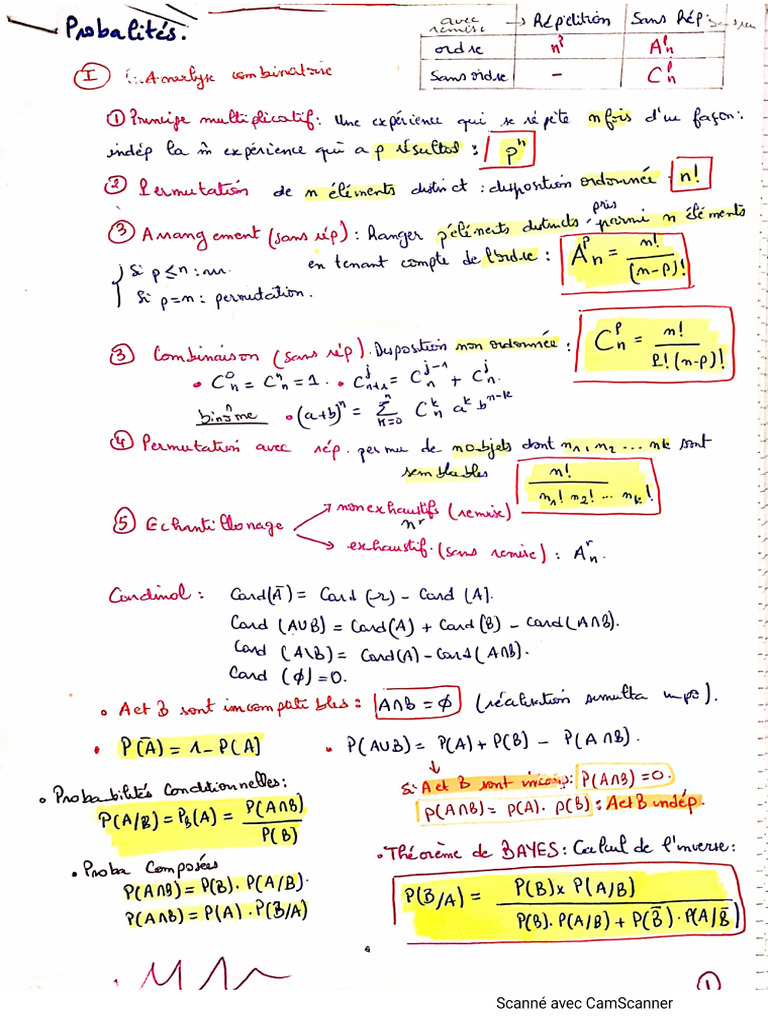 Probalités.
avec remise → Répétition | Sans Rép
ordre | nᵖ | Aₙᵖ
Sans ordre | - | Cₙᵖ
I Analyse combinatoire
① Principe multiplicatif : Une expérience qui se répète n fois d'un façon :
indép la m̂ expérience qui a p résultat : pⁿ
② Permutation de n éléments distinct : disposition ordonnée n!
③ Arrangement (sans rép) : Ranger p éléments distincts, pris parmi n éléments
en tenant compte de l'ordre : Aₙᵖ = n!/(n-p)!
Si p ≤ n :
Si p = n : permutation.
③ Combinaison (sans rép). Disposition non ordonnée : Cₙᵖ = n!/P!(n-p)!
• Cₙ⁰ = Cₙⁿ = 1. • Cₙ₊₁ʲ = Cₙʲ⁻¹ + Cₙʲ.
binôme • (a+b)ⁿ = Σₖ₌₀ⁿ Cₙᵏ aᵏ bⁿ⁻ᵏ
④ Permutation avec rép. permu de n objets dont n₁, n₂ ... nk sont
semblables n!/n₁! n₂! ... nₖ!
⑤ Echantillonage → non exhaustifs (remise)
nʳ
→ exhaustif. (sans remise) : Aₙʳ.
Cardinal : Card(Ā) = Card (Ω) - Card (A).
Card (A∪B) = Card(A) + Card(B) - Card(A∩B).
Card (A\B) = Card(A) - Card(A∩B).
Card (ϕ) = 0.
• A et B sont incompatibles : A∩B = ϕ (réalisation simulta impo).
• P(Ā) = 1 - P(A) • P(A∪B) = P(A) + P(B) - P(A∩B).
↓
Si A et B sont incomp : P(A∩B) = 0.
P(A∩B) = P(A). P(B) : A et B indép.
• Probabilités Conditionnelles :
P(A/B) = P_B(A) = P(A∩B)/P(B)
• Proba Composées
P(A∩B) = P(B). P(A/B).
P(A∩B) = P(A). P(B/A)
• Théorème de BAYES : Calcul de l'inverse :
P(B/A) = P(B) x P(A/B) / P(B). P(A/B) + P(B̄). P(A/B̄)
①
Scanné avec CamScanner